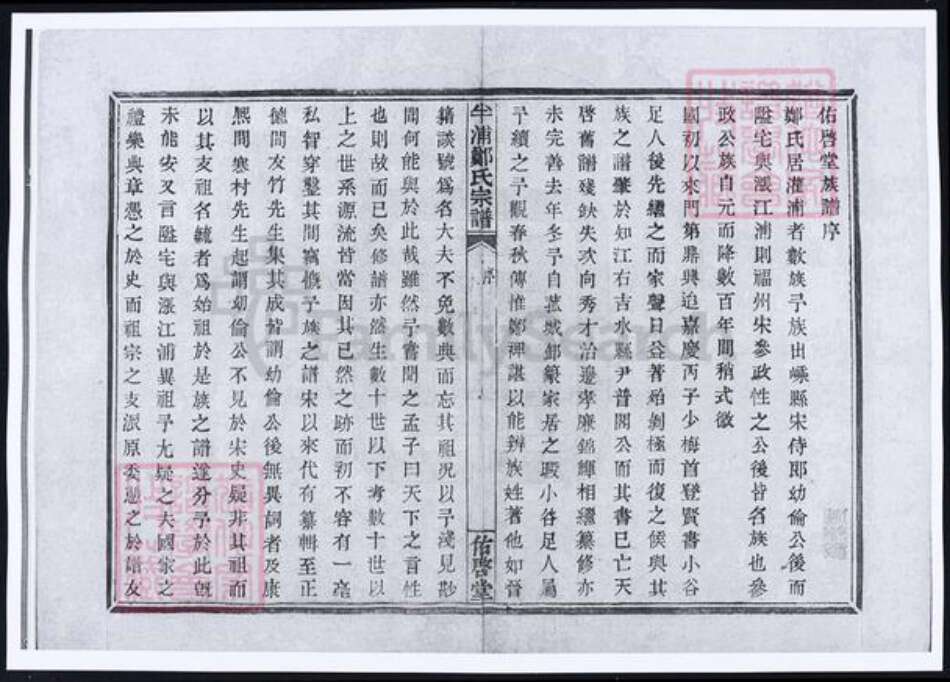 佑啓堂族譜序
鄭氏居灌浦者數族予族出嵊縣宋侍郎幼倫公後而
隘宅與漲江浦則福州宋參政性之公後皆名族也參
政公族自元而降數百年間稍式微
國初以來門第鼎興迨嘉慶丙子少梅首登賢書小谷
足人後先繼之而家聲日益著殆剝極而復之候與其
族之譜肇於知江右吉水縣尹普閣公而其書已亡天
啓舊譜殘缺失次向秀才治邊孝廉錦輝相繼纂修亦
未完善去年冬予自菰城卸篆家居之暇小谷足人屬
予續之予觀春秋傳惟鄭裨諶以能辨族姓著他如晉
半浦鄭氏宗譜
序
佑啓堂
籍談號爲名大夫不免數典而忘其祖况以予淺見尠
聞何能與於此哉雖然予嘗聞之孟子曰天下之言性
也則故而已矣修譜亦然生數十世以下考數十世以
上之世系源流皆當因其已然之跡而初不容有一毫
私智穿鑿其間竊慨予族之譜宋以來代有纂輯至正
德間友竹先生集其成皆謂幼倫公後無異詞者及康
熙間寒村先生起謂幼倫公不見於宋史疑非其祖而
以其支祖名毓者爲始祖於是族之譜遂分予於此旣
未能安又言隘宅與漲江浦異祖予尤疑之夫國家之
禮樂典章憑之於史而祖宗之支派原委憑之於譜友
FamilySearch